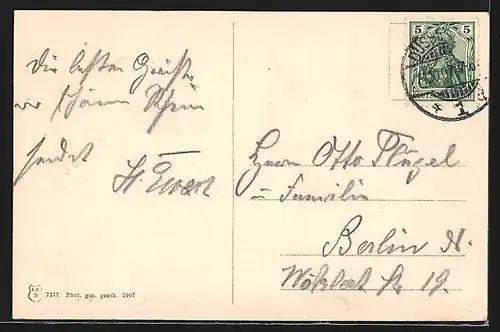 Die besten Grüße
vom schönen Rhein
sendet
H. Ewert
Herrn Otto Flügel
u Familie
Berlin N.
Wöhlert str 19.
7177 Phot. ges. gesch. 1907
5 5